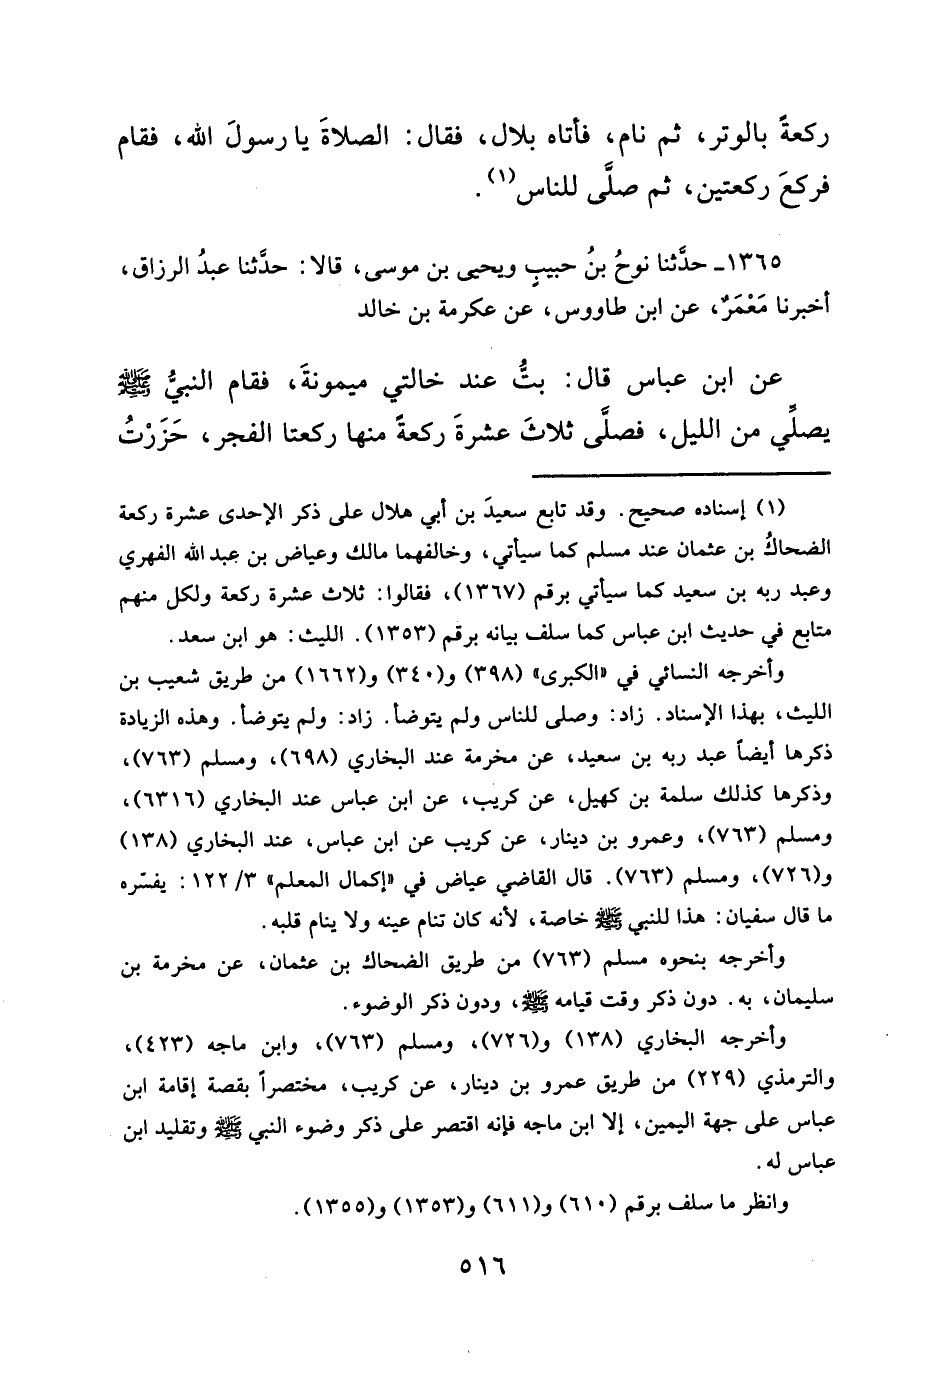 ركعةً بالوتر، ثم نام، فأتاه بلال، فقال: الصلاةَ يا رسولَ الله، فقام
فركعَ ركعتين، ثم صلَّى للناس(١).
١٣٦٥ـ حدَّثنا نوحُ بنُ حبيبٍ ويحيى بن موسى، قالا: حدَّثنا عبدُ الرزاق،
أخبرنا مَعْمَرٌ، عن ابن طاووس، عن عكرمة بن خالد
عن ابن عباس قال: بتُّ عند خالتي ميمونةَ، فقام النبيُّ ﷺ
يصلِّي من الليل، فصلَّى ثلاثَ عشرةَ ركعةً منها ركعتا الفجر، حَزَرْتُ
(١) إسناده صحيح. وقد تابع سعيدَ بن أبي هلال على ذكر الإحدى عشرة ركعة
الضحاكُ بن عثمان عند مسلم كما سيأتي، وخالفهما مالك وعياض بن عبد الله الفهري
وعبد ربه بن سعيد كما سيأتي برقم (١٣٦٧)، فقالوا: ثلاث عشرة ركعة ولكل منهم
متابع في حديث ابن عباس كما سلف بيانه برقم (١٣٥٣). الليث: هو ابن سعد.
وأخرجه النسائي في «الكبرى» (٣٩٨) و(٣٤٠) و(١٦٦٢) من طريق شعيب بن
الليث، بهذا الإسناد. زاد: وصلى للناس ولم يتوضأ. زاد: ولم يتوضأ. وهذه الزيادة
ذكرها أيضاً عبد ربه بن سعيد، عن مخرمة عند البخاري (٦٩٨)، ومسلم (٧٦٣)،
وذكرها كذلك سلمة بن كهيل، عن كريب، عن ابن عباس عند البخاري (٦٣١٦)،
ومسلم (٧٦٣)، وعمرو بن دينار، عن كريب عن ابن عباس، عند البخاري (١٣٨)
و(٧٢٦)، ومسلم (٧٦٣). قال القاضي عياض في «إكمال المعلم» ٣/ ١٢٢: يفسّره
ما قال سفيان: هذا للنبي ﷺ خاصة، لأنه كان تنام عينه ولا ينام قلبه.
وأخرجه بنحوه مسلم (٧٦٣) من طريق الضحاك بن عثمان، عن مخرمة بن
سليمان، به. دون ذكر وقت قيامه ﷺ، ودون ذكر الوضوء.
وأخرجه البخاري (١٣٨) و(٧٢٦)، ومسلم (٧٦٣)، وابن ماجه (٤٢٣)،
والترمذي (٢٢٩) من طريق عمرو بن دينار، عن كريب، مختصراً بقصة إقامة ابن
عباس على جهة اليمين، إلا ابن ماجه فإنه اقتصر على ذكر وضوء النبي ﷺ وتقليد ابن
عباس له.
وانظر ما سلف برقم (٦١٠) و(٦١١) و(١٣٥٣) و(١٣٥٥).
٥١٦